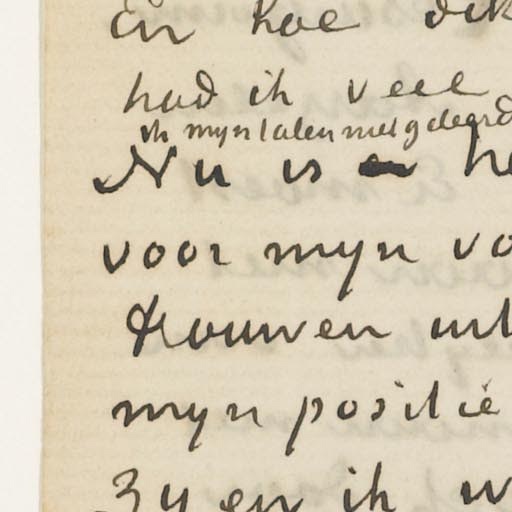 En hoe dik
had ik veel
ik myn talen niet geleerd
Nu is he
voor myn vo
trouwen uit
myn positie
Zy en ik w